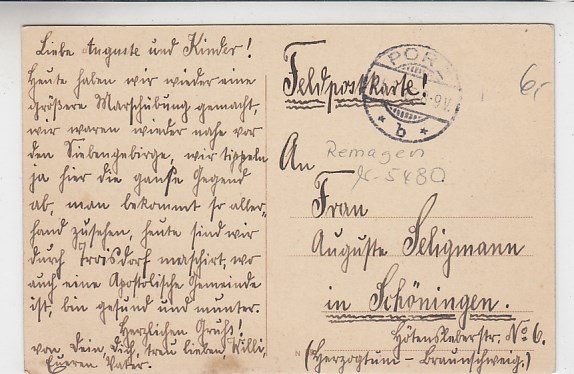 Liebe Auguste und Kinder!
Heute haben wir wieder eine
größere Marschübung gemacht,
wir waren wieder nahe vor
den Siebengebirge, wir tippeln
ja hier die ganße Gegend
ab, man bekommt so aller-
hand zusehen, heute sind wir
durch Troisdorf maschirt, wo
auch eine Apostolische Gemeinde
ist, bin gesund und munter.
Herzlichen Gruß!
von Dein, dich, treu lieben Willi,
Eueren Vater.
Feldpostkarte!
PORZ
b
6,
Remagen
5480
An
Frau
Auguste Seligmann
in Schöningen.
Hötensleberstr. No 6.
(Herzogtum – Braunschweig.)